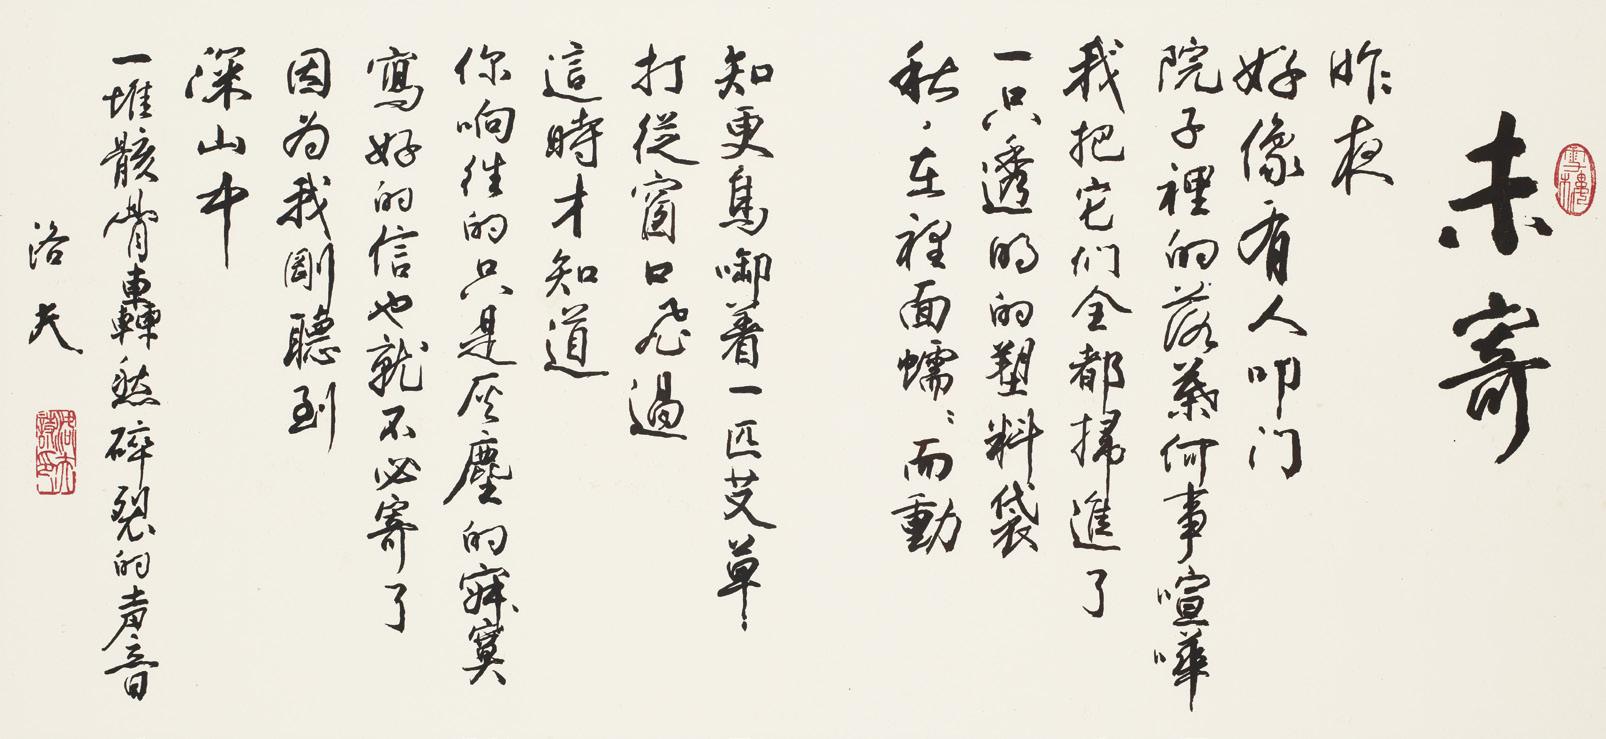 未寄
昨夜
好像有人叩门
院子裡的落葉何事喧嘩
我把它们全都掃進了
一只透明的塑料袋
秋,在裡面蠕蠕而動
知更鳥啣着一匹艾草
打從窗口飛過
這時才知道
你响往的只是灰塵的寂寞
寫好的信也就不必寄了
因为我剛聽到
深山中
一堆骸骨轟然碎裂的声音
洛夫